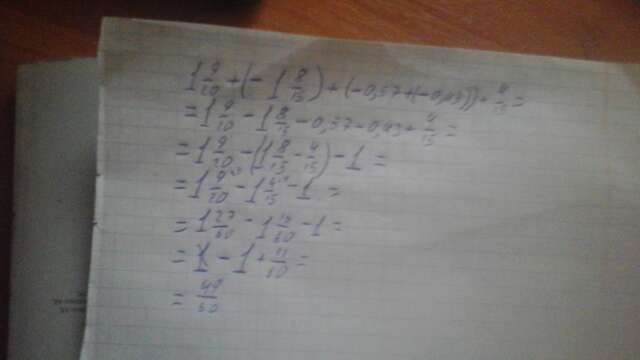 1 9/20 + (- 1 8/15) + (-0,57 + (-0,43)) + 4/15 =
= 1 9/20 - 1 8/15 - 0,57 - 0,43 + 4/15 =
= 1 9/20 - (1 8/15 - 4/15) - 1 =
= 1 9/20 - 1 4/15 - 1 =
= 1 27/60 - 1 16/60 - 1 =
= 1 - 1 + 11/60 =
= 49/60